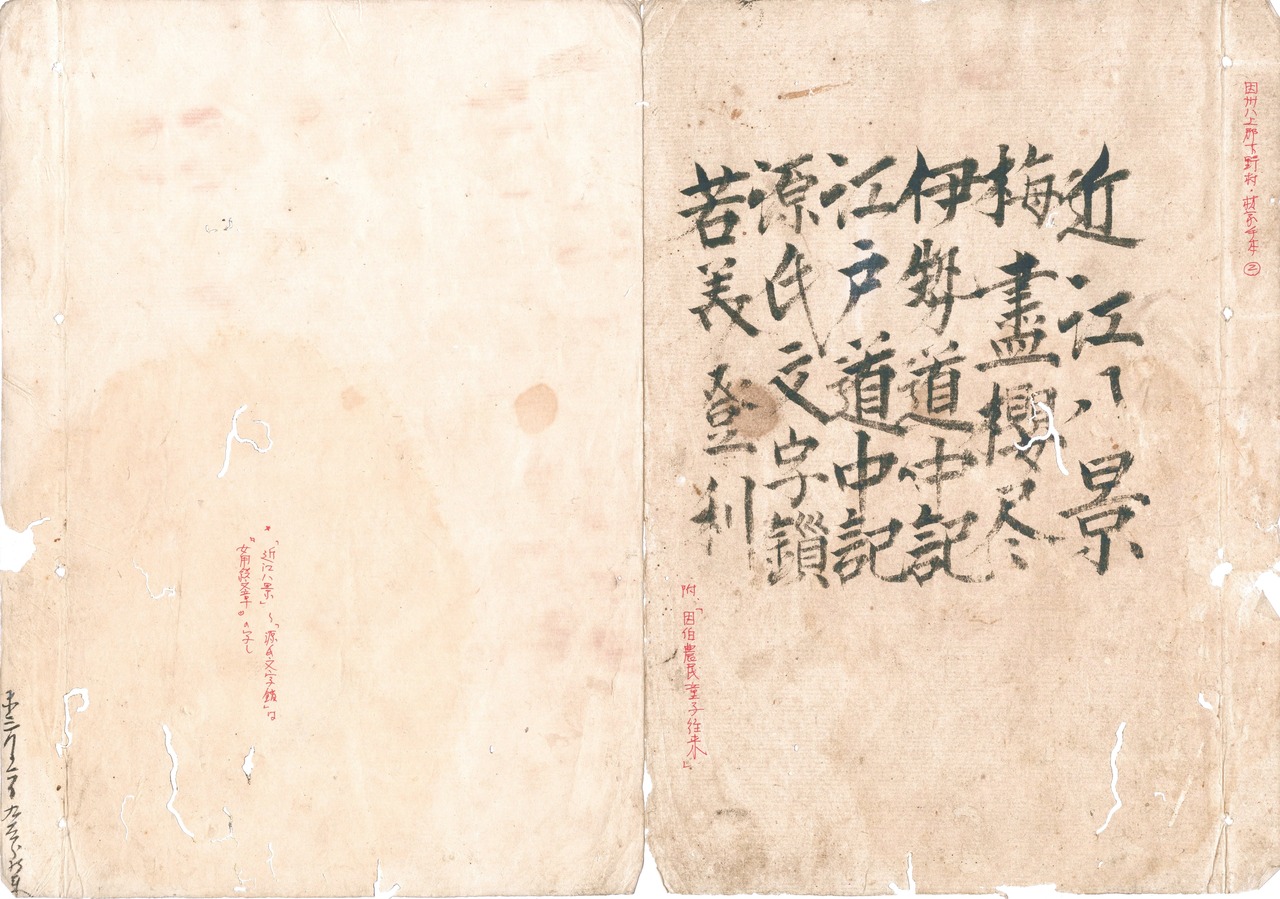 因州八上郡下野村・
近江八景
梅盡櫻尽
伊勢道中記
江戸道中記
源氏文字鎖
若美登利
附、「因伯農民童子往来」
*「近江八景」〜「源氏文字鎖」は
"女用 文章"の写し